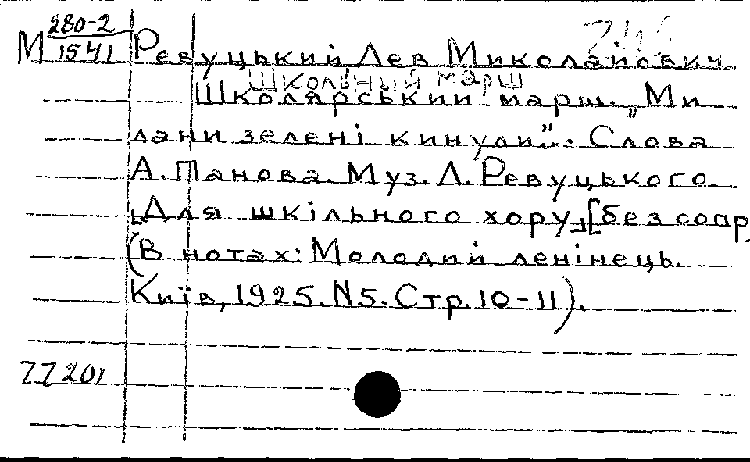 М 280-2/1541 Ревуцький Лев Миколайович
Школьный марш
Школярський марш. „Ми
лани зелені кинули". Слова
А. Панова. Муз. Л. Ревуцького.
[Для шкільного хору] [без сопр
(В нотах: Молодий ленінець.
Київ, 1925. N5. Стр. 10-11).
77201